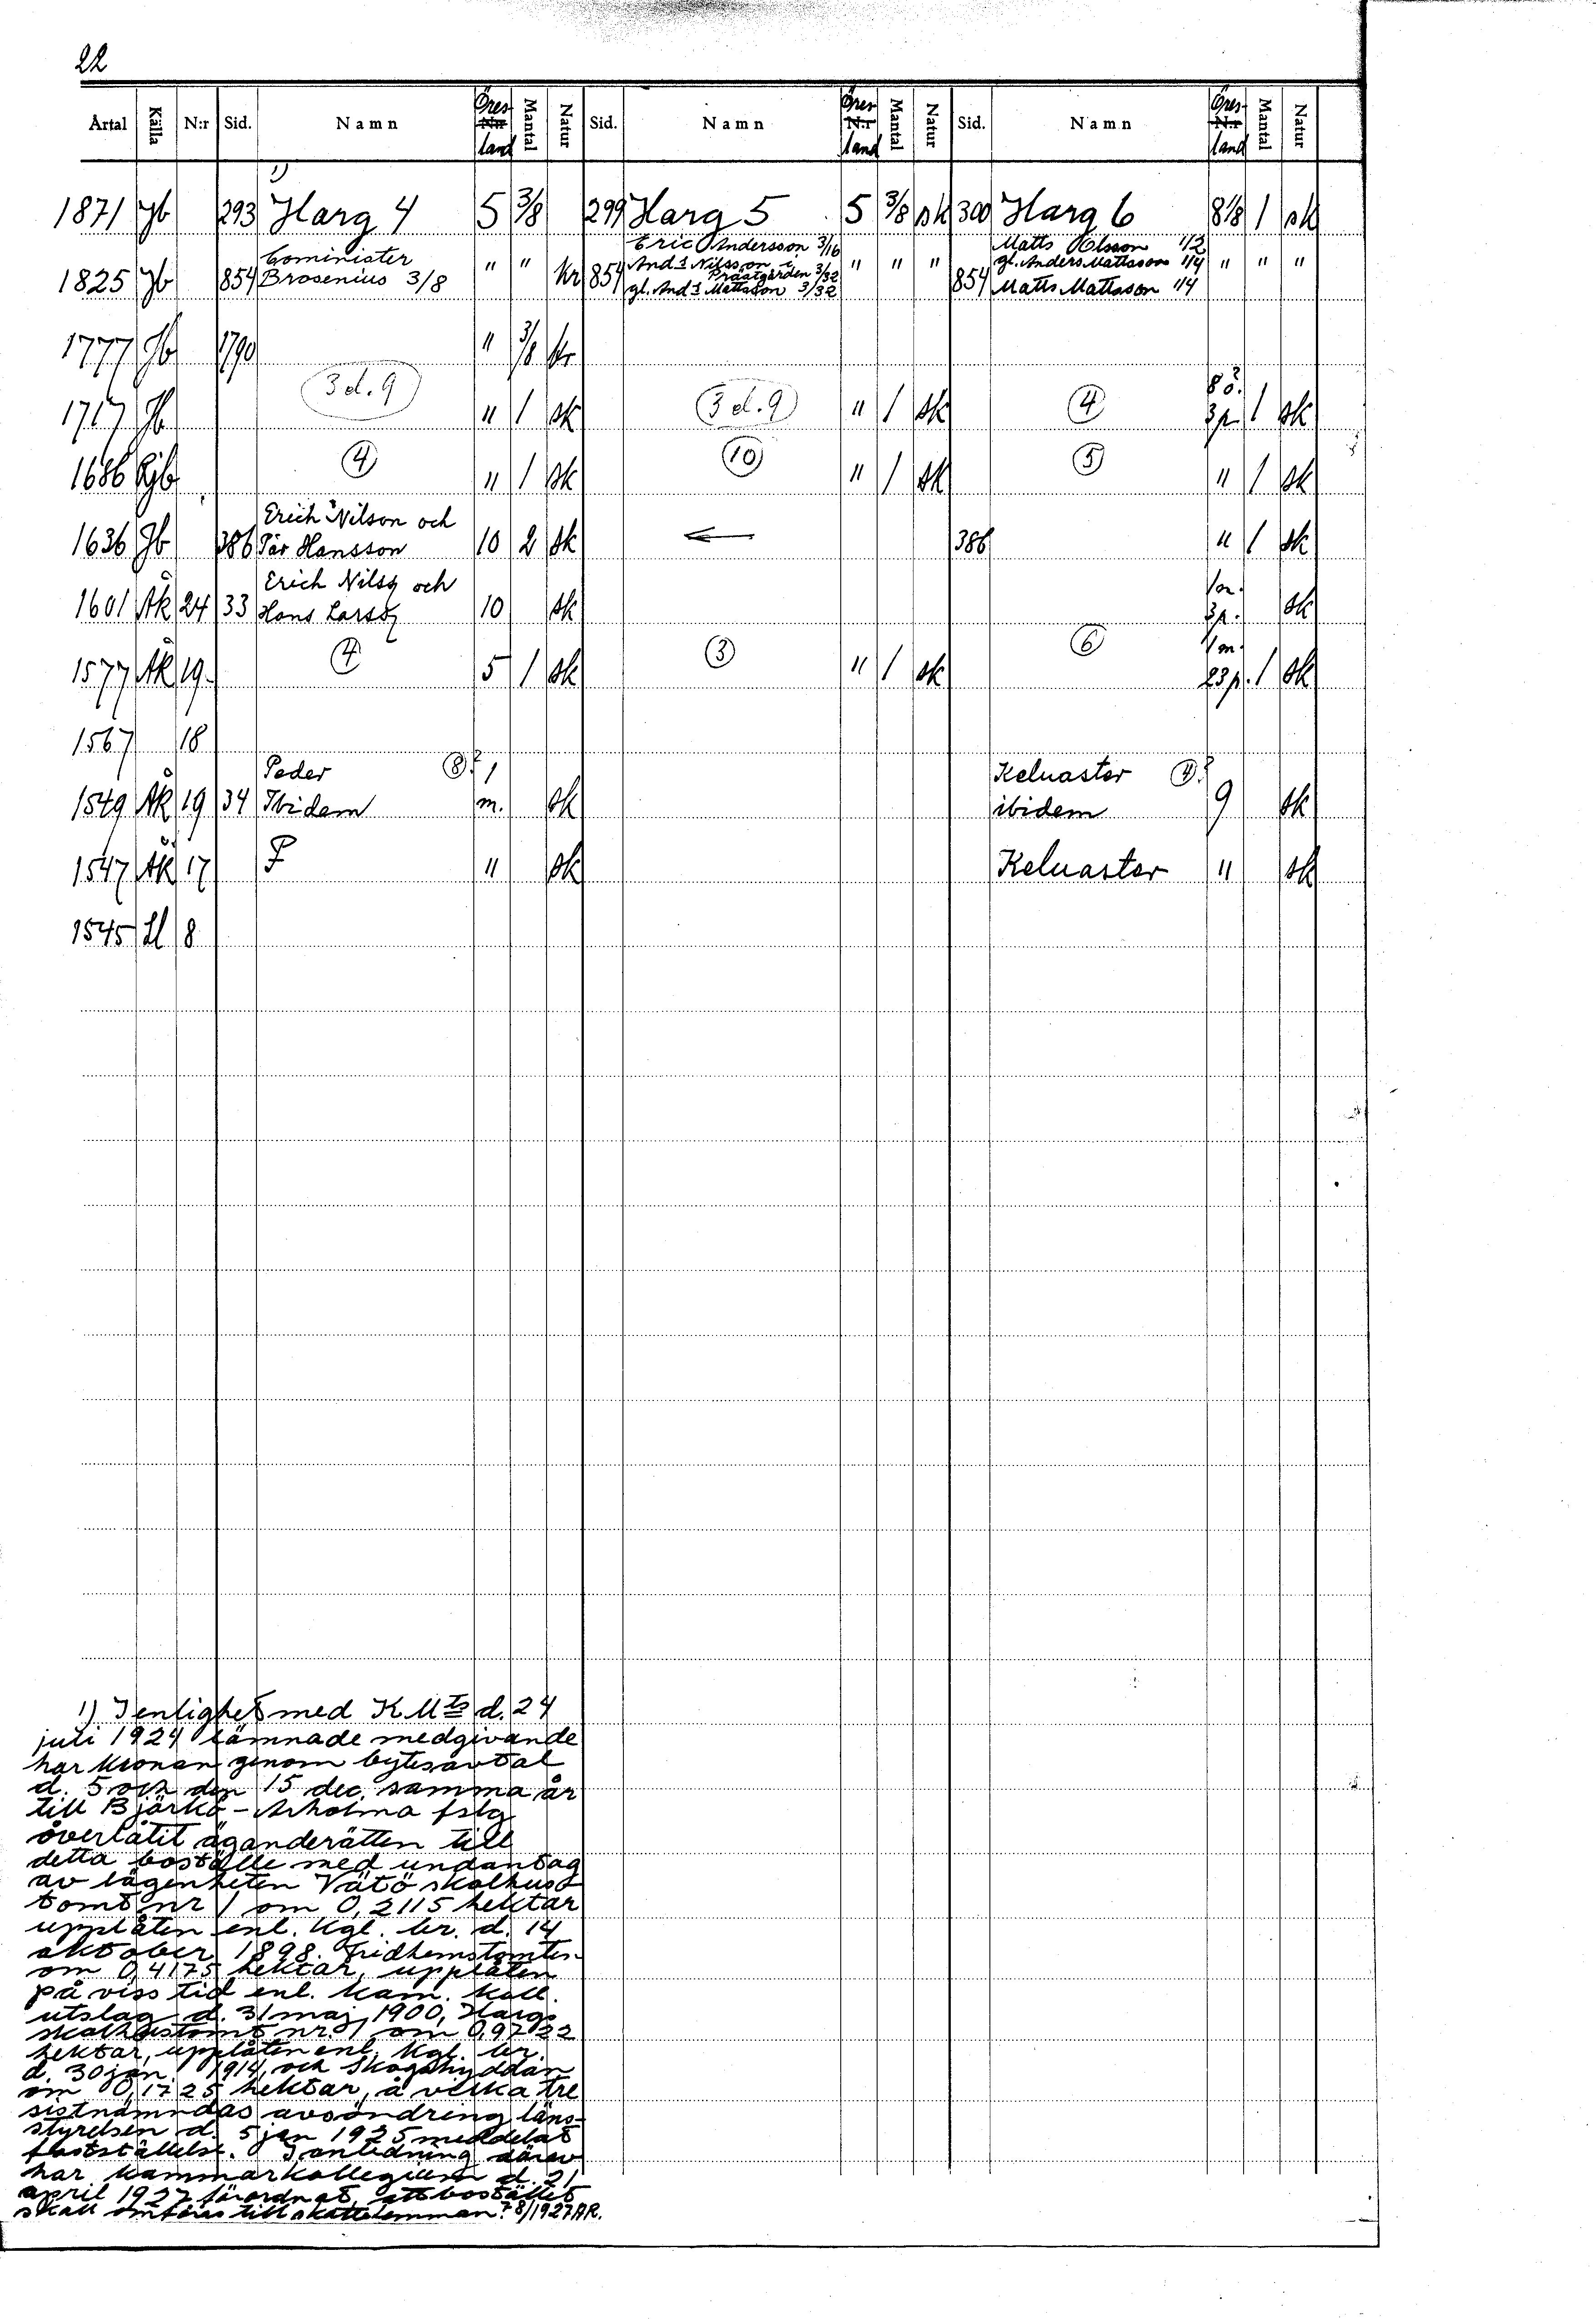 22
Årtal Källa N:r Sid. Namn Öresland Mantal Natur Sid. Namn Öresland Mantal Natur Sid. Namn Öresland Mantal Natur
1871 Jb 293 Harg 4 1) 5 3/8 299 Harg 5 5 3/8 sk 300 Harg 6 8 1/8 1 sk
1825 Jb 854 Cominister " " Kr 854 Eric Andersson 3/16 " " " 854 Matts Olsson 1/2 " " "
Brosenius 3/8 And s Nilsson i gl. Anders Mattsson 1/4
Prästgården 3/32 Matts Mattsson 1/4
gl. And s Mattsson 3/32
1777 Jb 1790 " 3/8 Kr
1717 Jb 3 el. 9 " 1 sk 3 el. 9 " 1 sk 4 8 ö.? 3 p. 1 sk
1686 Rjb 4 " 1 sk 10 " 1 sk 5 " 1 sk
1636 Jb 386 Erich Nilson och 10 2 sk ← 386 " 1 sk
Pär Hansson
1601 Åk 24 33 Erich Nilss och 10 sk 1 m. 3 p. sk
Hans Larss
1577 Åk 19 4 5 1 sk 3 " 1 sk 6 1 m. 23 p. 1 sk
1567 18
1549 Åk 19 34 Peder 8? 1 m. sk Keluaster 4? 9 sk
Ibidem ibidem
1547 Åk 17 P " sk Keluaster " sk
1545 Ll 8
1) I enlighet med K Mts d. 24
juli 1924 lämnade medgivande
har kronan genom bytesavtal
d. 5 och den 15 dec. samma år
till Björkö-Arholma fslg
överlåtit äganderätten till
detta boställe med undantag
av lägenheten Vätö skolhus-
tomt nr 1 om 0,2115 hektar
upplåten enl. kgl. br. d. 14
oktober 1898. Fridhemstomten
om 0,4175 hektar, upplåten
på viss tid enl. kam. koll.
utslag d. 31 maj 1900, Hargs
skolhustomt nr. 1 om 0,9722
hektar, upplåten enl. kgl. br.
d. 30 jan. 1914, och Skogshyddan
om 0,1725 hektar, å vilka tre
sistnämndas avsöndring läns-
styrelsen d. 5 jan 1925 meddelat
fastställelse. I anledning därav
har kammarkollegium d. 21
april 1927 förordnat, att bostället
skall omföras till skattehemman. 7/8/1927 AR.